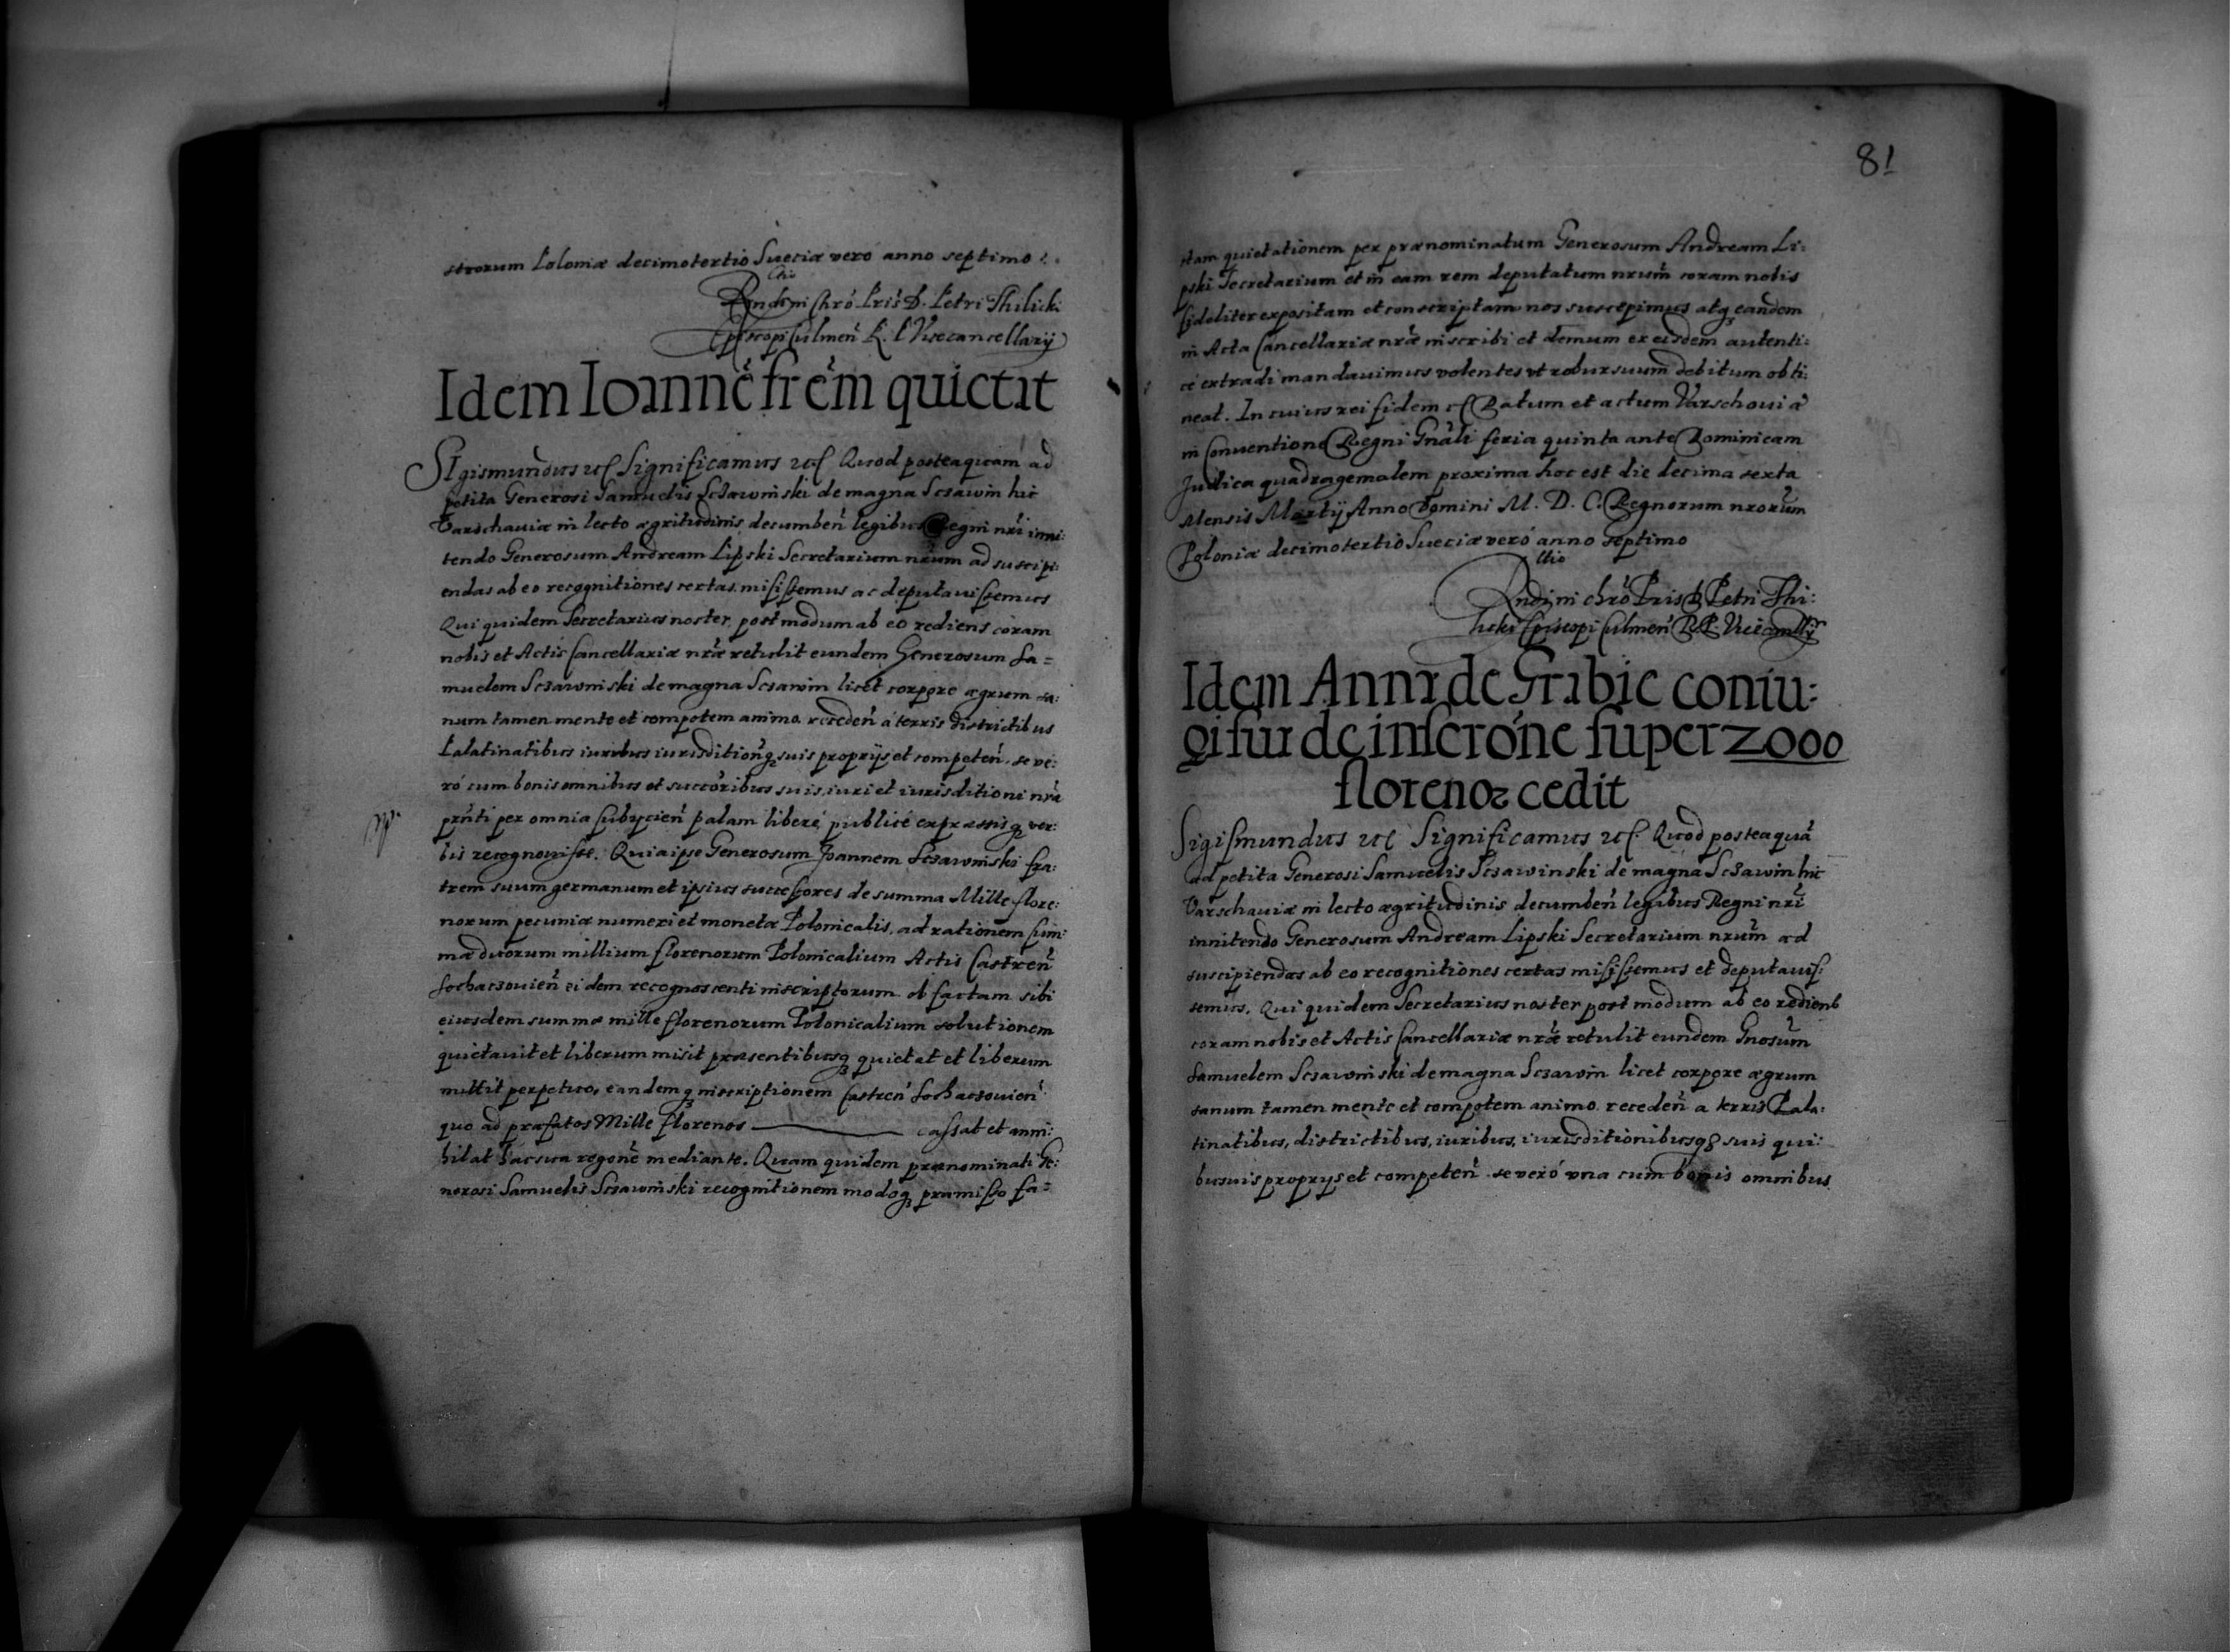 strorum Poloniæ decimotertio Sueciæ vero anno septimo.
Ctio
Rndi in Chrõ Pris D. Petri Thilicki
Episcopi Culmeñ R. P. Vicecancellarij
Idem Ioannẽ frẽm quietat
Sigismundus etc Significamus etc Quod posteaquam ad
petita Generosi Samuelis Sczawinski de magna Sczawin hic
Varschauiæ in lecto ægritudinis decumbeñ legibus Regni nri inni:
tendo Generosum Andream Lipski Secretarium nrum ad suscipi:
endas ab eo recognitiones certas misissemus ac deputauissemus
Qui quidem Secretarius noster postmodum ab eo rediens coram
nobis et Actis Cancellariæ nræ retulit eundem Generosum Sa=
muelem Sczawinski de magna Sczawin licet corpore ægrum sa:
num tamen mente et compotem animo recedeñ a terris districtibus
Palatinatibus iuribus iurisditioñq suis proprijs et competeñ. se ve:
ró cum bonis omnibus et succõribus suis, iuri et iurisditioni nrã
prñti per omnia subijcieñ palam liberé publicé expressisq ver:
bis recognouisse. Quia ipse Generosum Joannem Sczawinski fra:
trem suum germanum et ipsius successores de summa Mille flore:
norum pecuniæ numeri et monetæ Polonicalis, ad rationem sum:
mæ duorum millium florenorum Polonicalium Actis Castreñ
Sochaczouieñ eidem recognoscenti inscriptorum ob factam sibi
eiusdem summæ mille florenorum Polonicalium solutionem
quietauit et liberum misit præsentibusq quietat et liberum
mittit perpetuo, eandemq inscriptionem Castreñ Sochaczouieñ
quo ad præfatos Mille florenos cassat et anni:
hilat hac sua regonẽ mediante. Quam quidem prænominati Ge:
nerosi Samuelis Sczawinski recognitionem modoq præmisso fa=
81
ctam quietationem per prænominatum Generosum Andream Li:
pski Secretarium et in eam rem deputatum nrum coram nobis
fideliter expositam et conscriptam nos suscepimus atq eandem
in Acta Cancellariæ nræ inscribi et demum ex eisdem autenti:
cé extradi mandauimus volentes vt robur suum debitum obti:
neat. In cuius rei fidem etc Datum et actum Varschouiæ
in Conuentione Regni Gnãli feria quinta ante Dominicam
Judica quadragemalem proxima hoc est die decima sexta
Mensis Martij Anno Domini M. D. C. Regnorum nrorum
Poloniæ decimotertio Sueciæ veró anno septimo
Rndi in chrõ Pris D Petri Thi:
licki Episcopi Culmeñ R. P. Vicecancllrij
Idem Annæ de Grabie coniu:
gi suæ de inscrõne super 2000
florenoꝝ cedit
Sigismundus etc Significamus etc. Quod posteaquã
ad petita Generosi Samuelis Sczawinski de magna Sczawin hic
Varschauiæ in lecto ægritudinis decumbeñ legibus Regni nri
innitendo Generosum Andream Lipski Secretarium nrum ad
suscipiendas ab eo recognitiones certas misissemus et deputauis:
semus. Qui quidem Secretarius noster post modum ab eo rediens
coram nobis et Actis Cancellariæ nræ retulit eundem Gnosum
Samuelem Sczawinski de magna Sczawin licet corpore ægrum
sanum tamen mente et compotem animo recedeñ a terris Pala:
tinatibus, districtibus, iuribus, iurisditionibusqꝫ suis qui:
busuis proprijs et competeñ se veró vna cum bonis omnibus